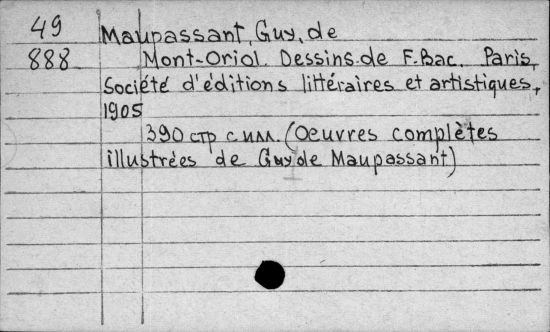 49 Maupassant, Guy, de
888 Mont-Oriol. Dessins de F. Bac. Paris,
Société d'éditions littéraires et artistiques,
1905
390 стр с илл. (Oeuvres complètes
illustrées de Guy de Maupassant)